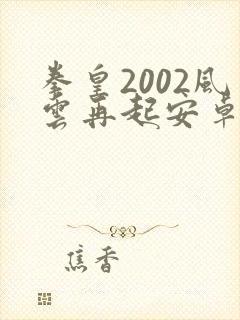 拳皇2002風
雲再起安卓
焦香